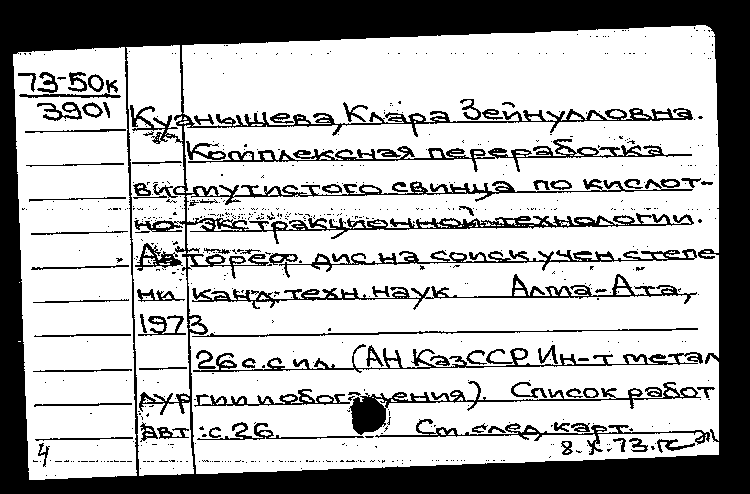 73-50к
3901
Куанышева, Клара Зейнулловна.
Комплексная переработка
висмутистого свинца по кислот-
но-экстракционной технологии.
Автореф. дис. на соиск. учен. степе
ни канд. техн. наук. Алма-Ата,
1973.
26 с. с ил. (АН КазССР. Ин-т метал
лургии и обогащения). Список работ
авт.: с. 26. См. след. карт.
4
8.X.73.